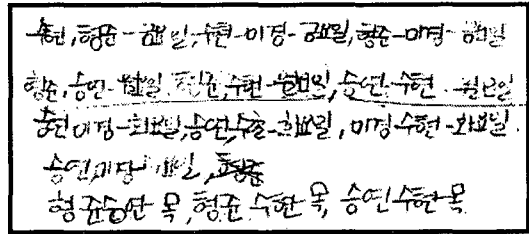 수현,형준-금요일,수현-미경-금요일,형준-미경-금요일
형준,승연-월요일,형준,수현-월요일,승연-수현-월요일
승연미경-화요일,승연,수현-화요일,미경수현-화요일
승연,미경-
형준승연-목,형준수현-목,승연수현-목